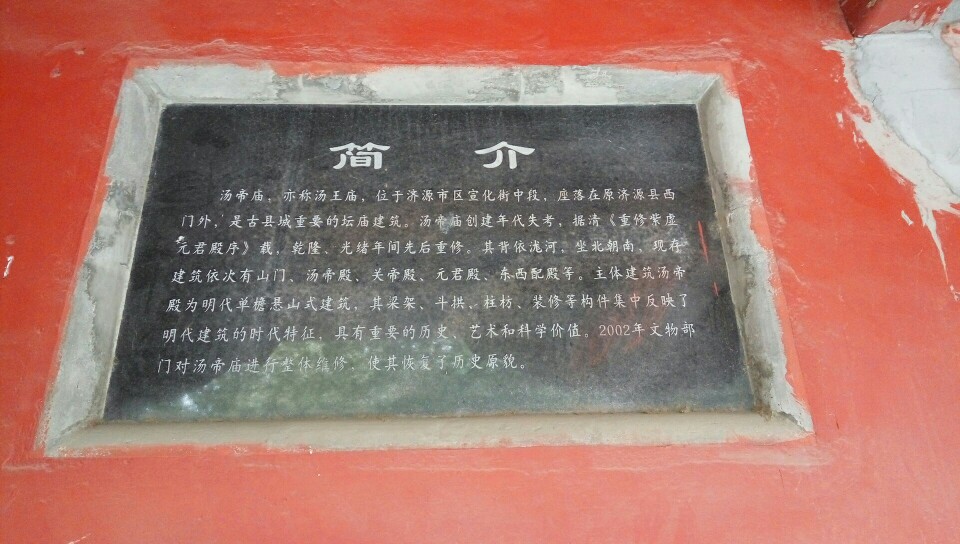 简 介
汤帝庙，亦称汤王庙，位于济源市区宣化街中段，座落在原济源县西
门外，是古县城重要的坛庙建筑。汤帝庙创建年代失考，据清《重修紫虚
元君殿序》载，乾隆、光绪年间先后重修。其背依泷河，坐北朝南，现存
建筑依次有山门、汤帝殿、关帝殿、元君殿、东西配殿等。主体建筑汤帝
殿为明代单檐悬山式建筑，其梁架、斗拱、柱枋、装修等构件集中反映了
明代建筑的时代特征，具有重要的历史、艺术和科学价值。2002年文物部
门对汤帝庙进行整体维修，使其恢复了历史原貌。